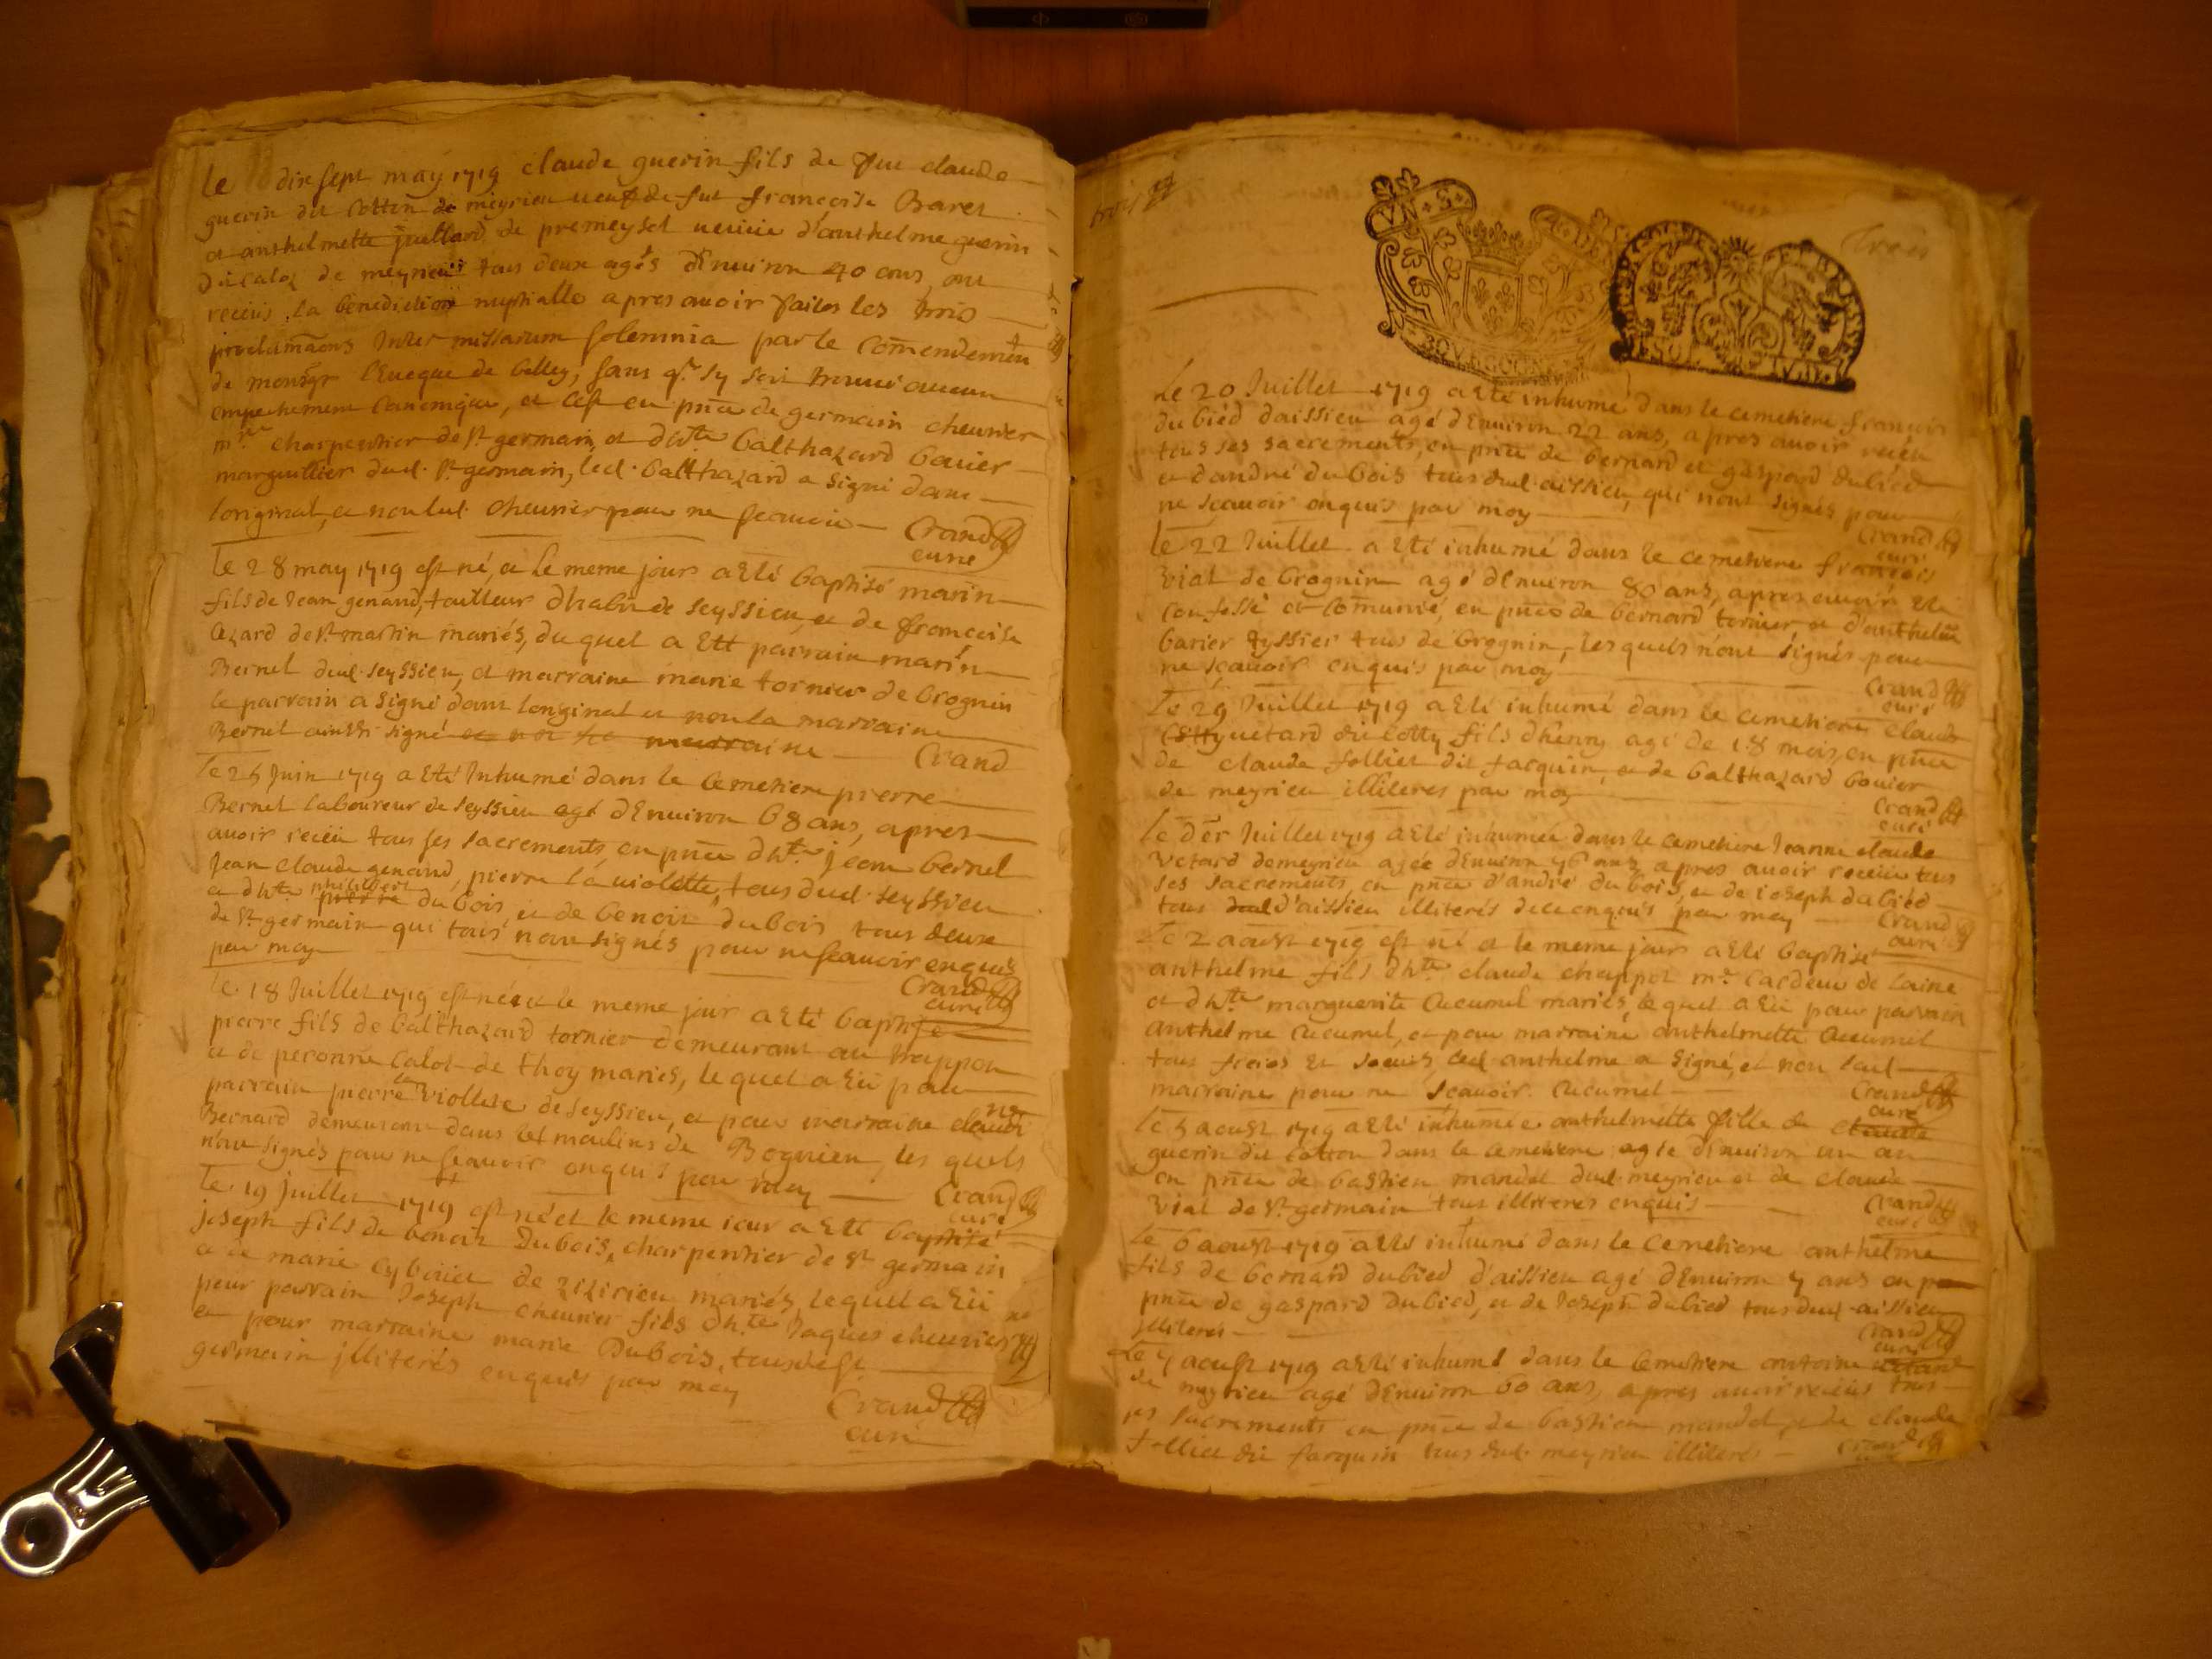 le dix sept may 1719 claude guerin fils de feu claude
guerin dit cotton de meyrieu veuf de feue françoise Baret
et anthelmette juillard de premeysel veuve d'anthelme guerin
dit caloz de meyrieu tous deux agés d'Environ 40 ans, ont
receus la benediction nuptialle apres avoir faites les trois
proclamaons Inter missarum solemnia par le comendement
de monsgr l'Eveque de belley, sans q. sy soit trouvé aucun
empechement canonique, et cest en pnce de germain chevrier
mre charpentier de st germain, et dhte balthazard bavier
marguillier dud. st germain, led. balthazard a signé dans
loriginal, et non led. chevrier pour ne scavoir Crand
curé
le 28 may 1719 est né, et le meme jour a Eté baptisé marin
fils de Jean genand, tailleur dhabit de seyssieu, et de françoise
azard de st martin mariés, du quel a Ett parrain marin
Bernel dud. seyssieu, et marraine marie tornier de brognin
le parrain a signé dans loriginal et non la marraine
Bernel ainssi signé et non la marraine Crand
le 25 Juin 1719 a Eté Inhumé dans le cemetiere pierre
Bernel laboureur de seyssieu agé d'Environ 68 ans, apres
avoir receu tous ses sacrements, en pnce dhte. jean bernel
Jean claude genand, pierre la violette, tous dud. seyssieu
et dhte philibert pierre du bois, et de benoit dubois tous deux
de st germain qui tous nont signés pour ne scavoir enquis
par moy Crand
curé
le 18 Juillet 1719 est né et le meme jour a Eté baptisé
pierre fils de balthazard tornier demeurant au trappon
et de peronne calot de thoy mariés, le quel a Eü pour
parrain pierre la violette de seyssieu, et pour marraine claudine
Bernard demeurant dans les moulins de Rognieu, les quels
nont signés pour ne scavoir enquis par moy Crand
curé
le 19 juillet 1719 est né et le meme jour a Eté baptisé
joseph fils de benoit Dubois, charpentier de st germain
et de marie de zizirieu mariés, lequel a Eü
pour parrain Joseph chevrier fils dh.te Jaques chevrier
et pour marraine marie Dubois, tous de st
germain jlliterés enquis par moy
Crand
curé
trois
trois
BOVRGOGNE
Le 20 Juillet 1719 a Eté inhumé dans le cemetiere françois
dubiéd daissieu agé d'Environ 22 ans, apres avoir receu
tous ses sacrements, en pnce de bernard et gaspard dubied
et dandré dubois tous dud. aissieu, qui nont signés pour
ne scavoir enquis par moy Crand
curé
le 22 Juillet a Eté inhumé dans le cemetiere françois
vial de brognin agé d'Environ 80 ans, apres avoir Eté
confessé et comunié, en pnce de bernard tornier et d'anthelme
barier tyssier tous de brognin, lesquels n'ont signés pour
ne sçavoir enquis par moy
Crand
curé
Le 29 Juillet 1719 a Eté inhumé dans le cemetiere claude
vetard dit lotty fils dhenry agé de 18 mois, en pnce
de claude follier dit farquin, et de balthazard bovier
de meyrieu illiteres par moy
Crand
curé
le der Juillet 1719 a Eté inhumée dans le cemetiere Jeanne claude
vetard de meyrieu agée d'Environ ans, apres avoir receu tous
ses sacrements, en pnce d'andré du bois, et de ioseph dubiéd
tous dud d'aissieu illiterés enquis par moy Crand
curé
le 2 aoust 1719 est né et le meme jour a Eté baptisé
anthelme fils dhte claude chappot m.e cardeur de laine
et dhte marguerite Cucumel mariés, le quel a Eü pour parrain
anthelme Cucumel, et pour marraine anthelmette Cucumel
tous freres et soeurs led. anthelme a signé, et non lad
marraine pour ne scavoir. Cucumel Crand
curé
le 5 aoust 1719 a Eté inhumée anthelmette fille de claude
guerin dit cotton dans le cemetiere agée d'Environ un an
en pnce de bastien mandel dud. meyrieu et de claude
vial de st germain tous illiteres enquis Crand
curé
le 6 aoust 1719 a Eté inhumé dans le cemetiere anthelme
fils de bernard dubied d'aissieu agé d'Environ 4 ans en
pnce de gaspard dubied, et de Joseph dubied tous dud. aissieu
jlliterés Crand
curé
le 7 aoust 1719 a Eté inhumé dans le cemetiere antoine vetard
de meyrieu agé d'Environ 60 ans, apres avoir receus tous
ses sacrements en pnce de bastien mandel, et de claude
follier dit farquin tous dud. meyrieu illiterés Crand